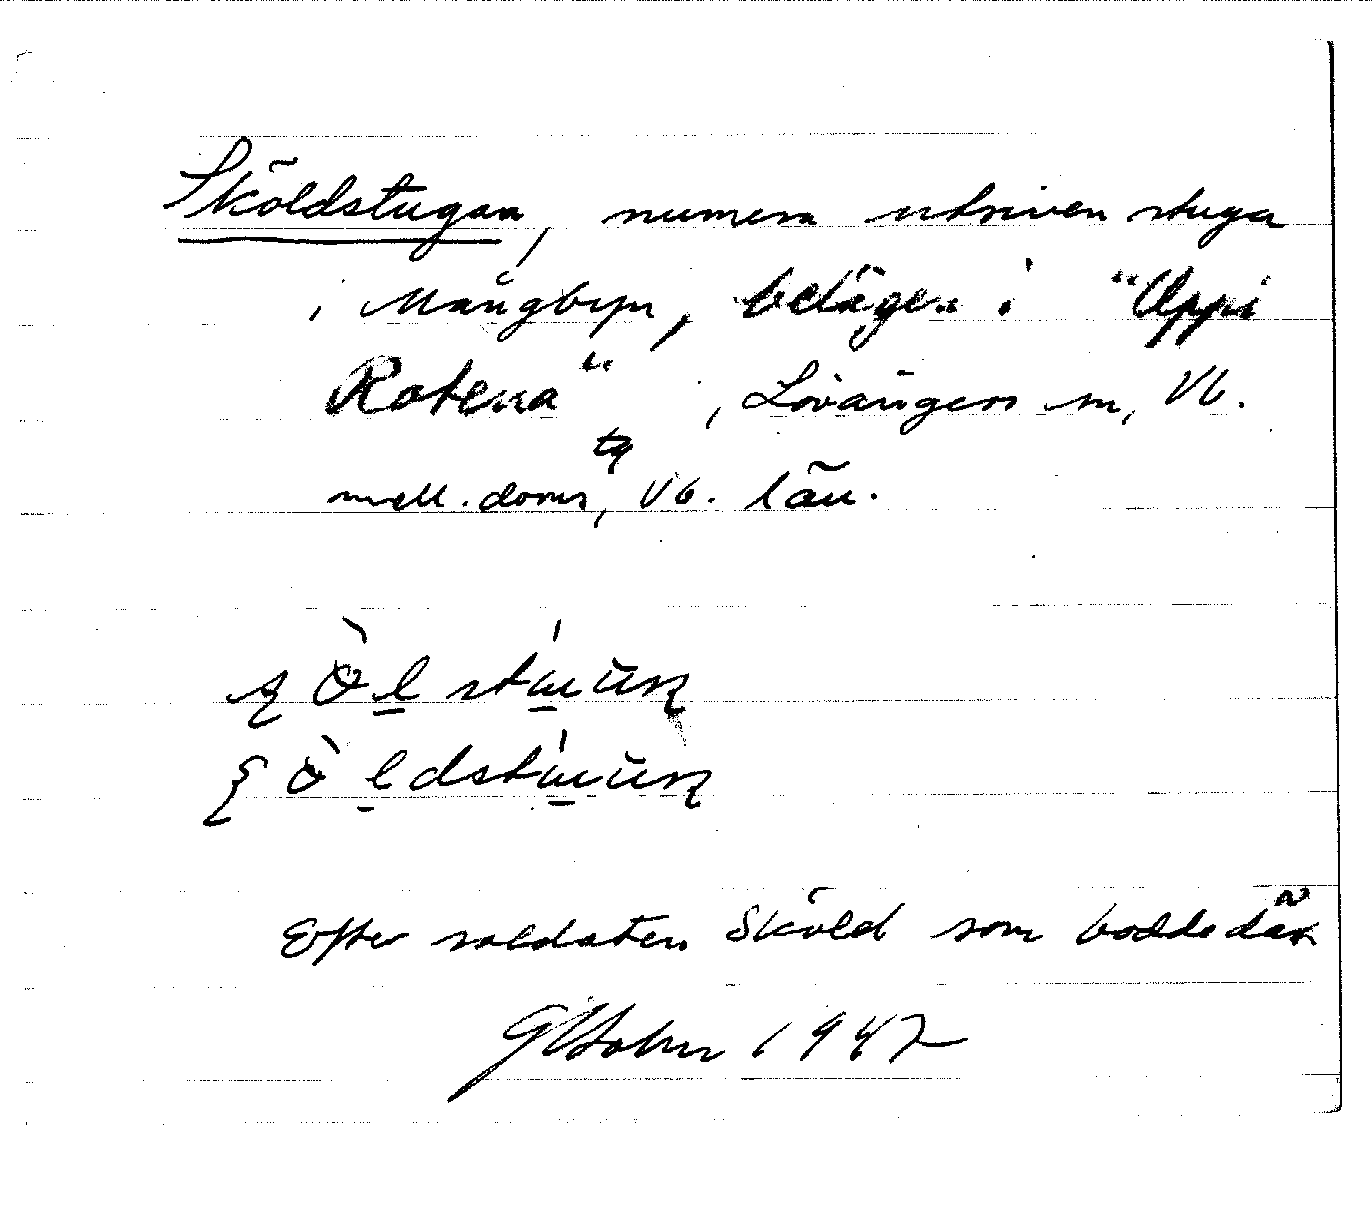 Sköldstugan, numera utriven stuga
i Mångbyn, belägen i "Uppi
Rotena", Lövångers sn, Vb.
mell. doms tg, Vb. län.
Efter soldaten Sköld som bodde där
1947